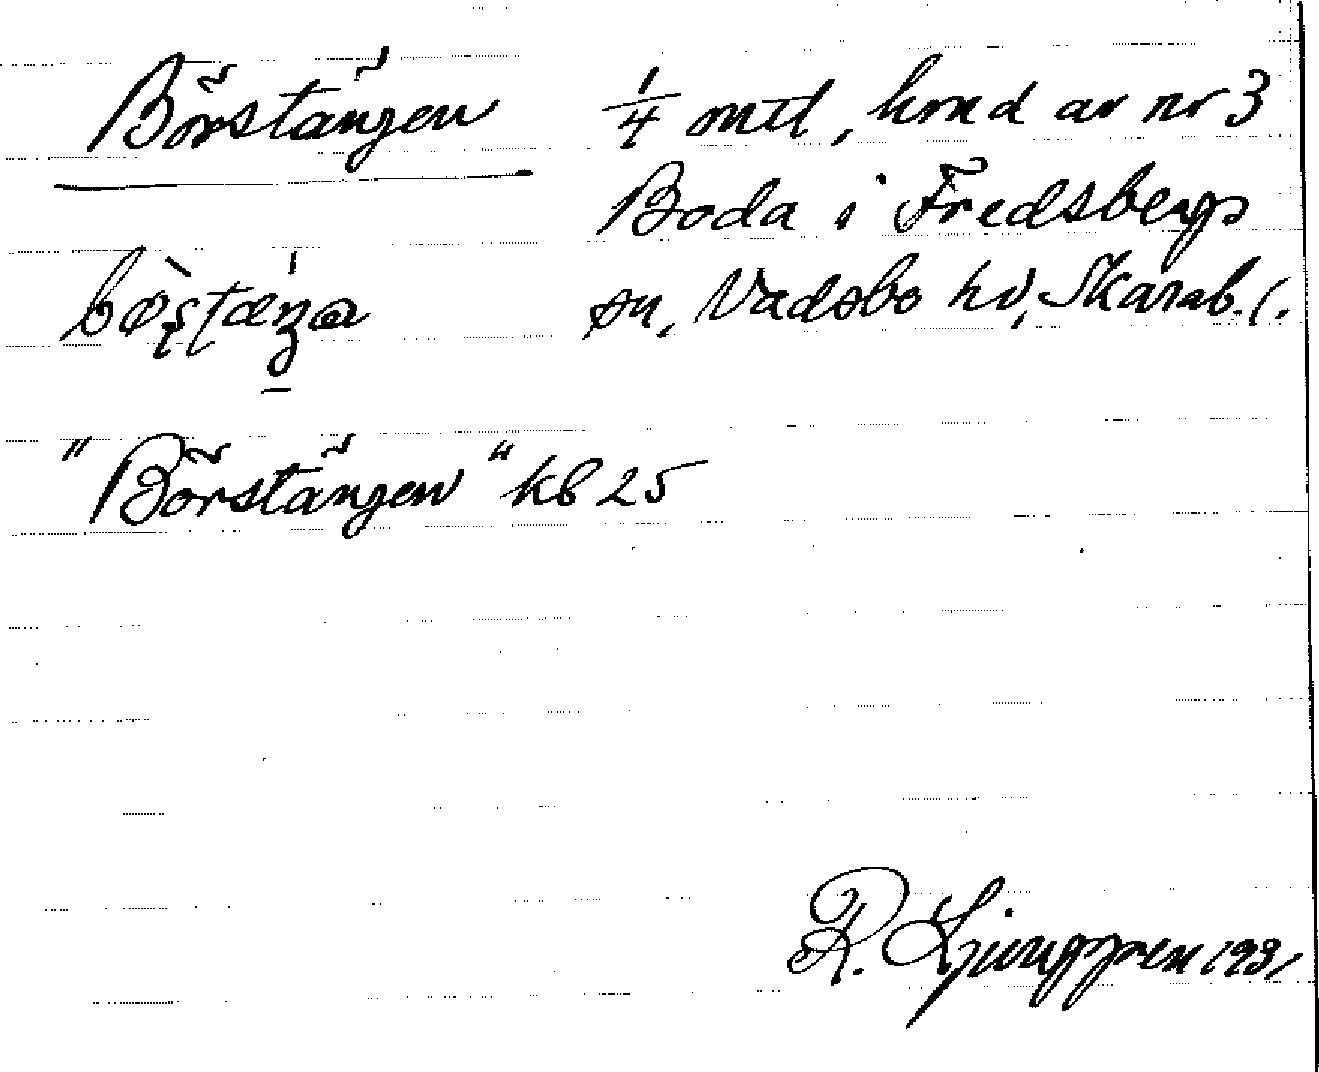 Börstången 1/4 mtl, hmd av nr 3
Boda i Fredsbergs
sn, Vadsbo hd, Skarab. l.
"Börstängen" kb 25
R. Ljunggren 1931